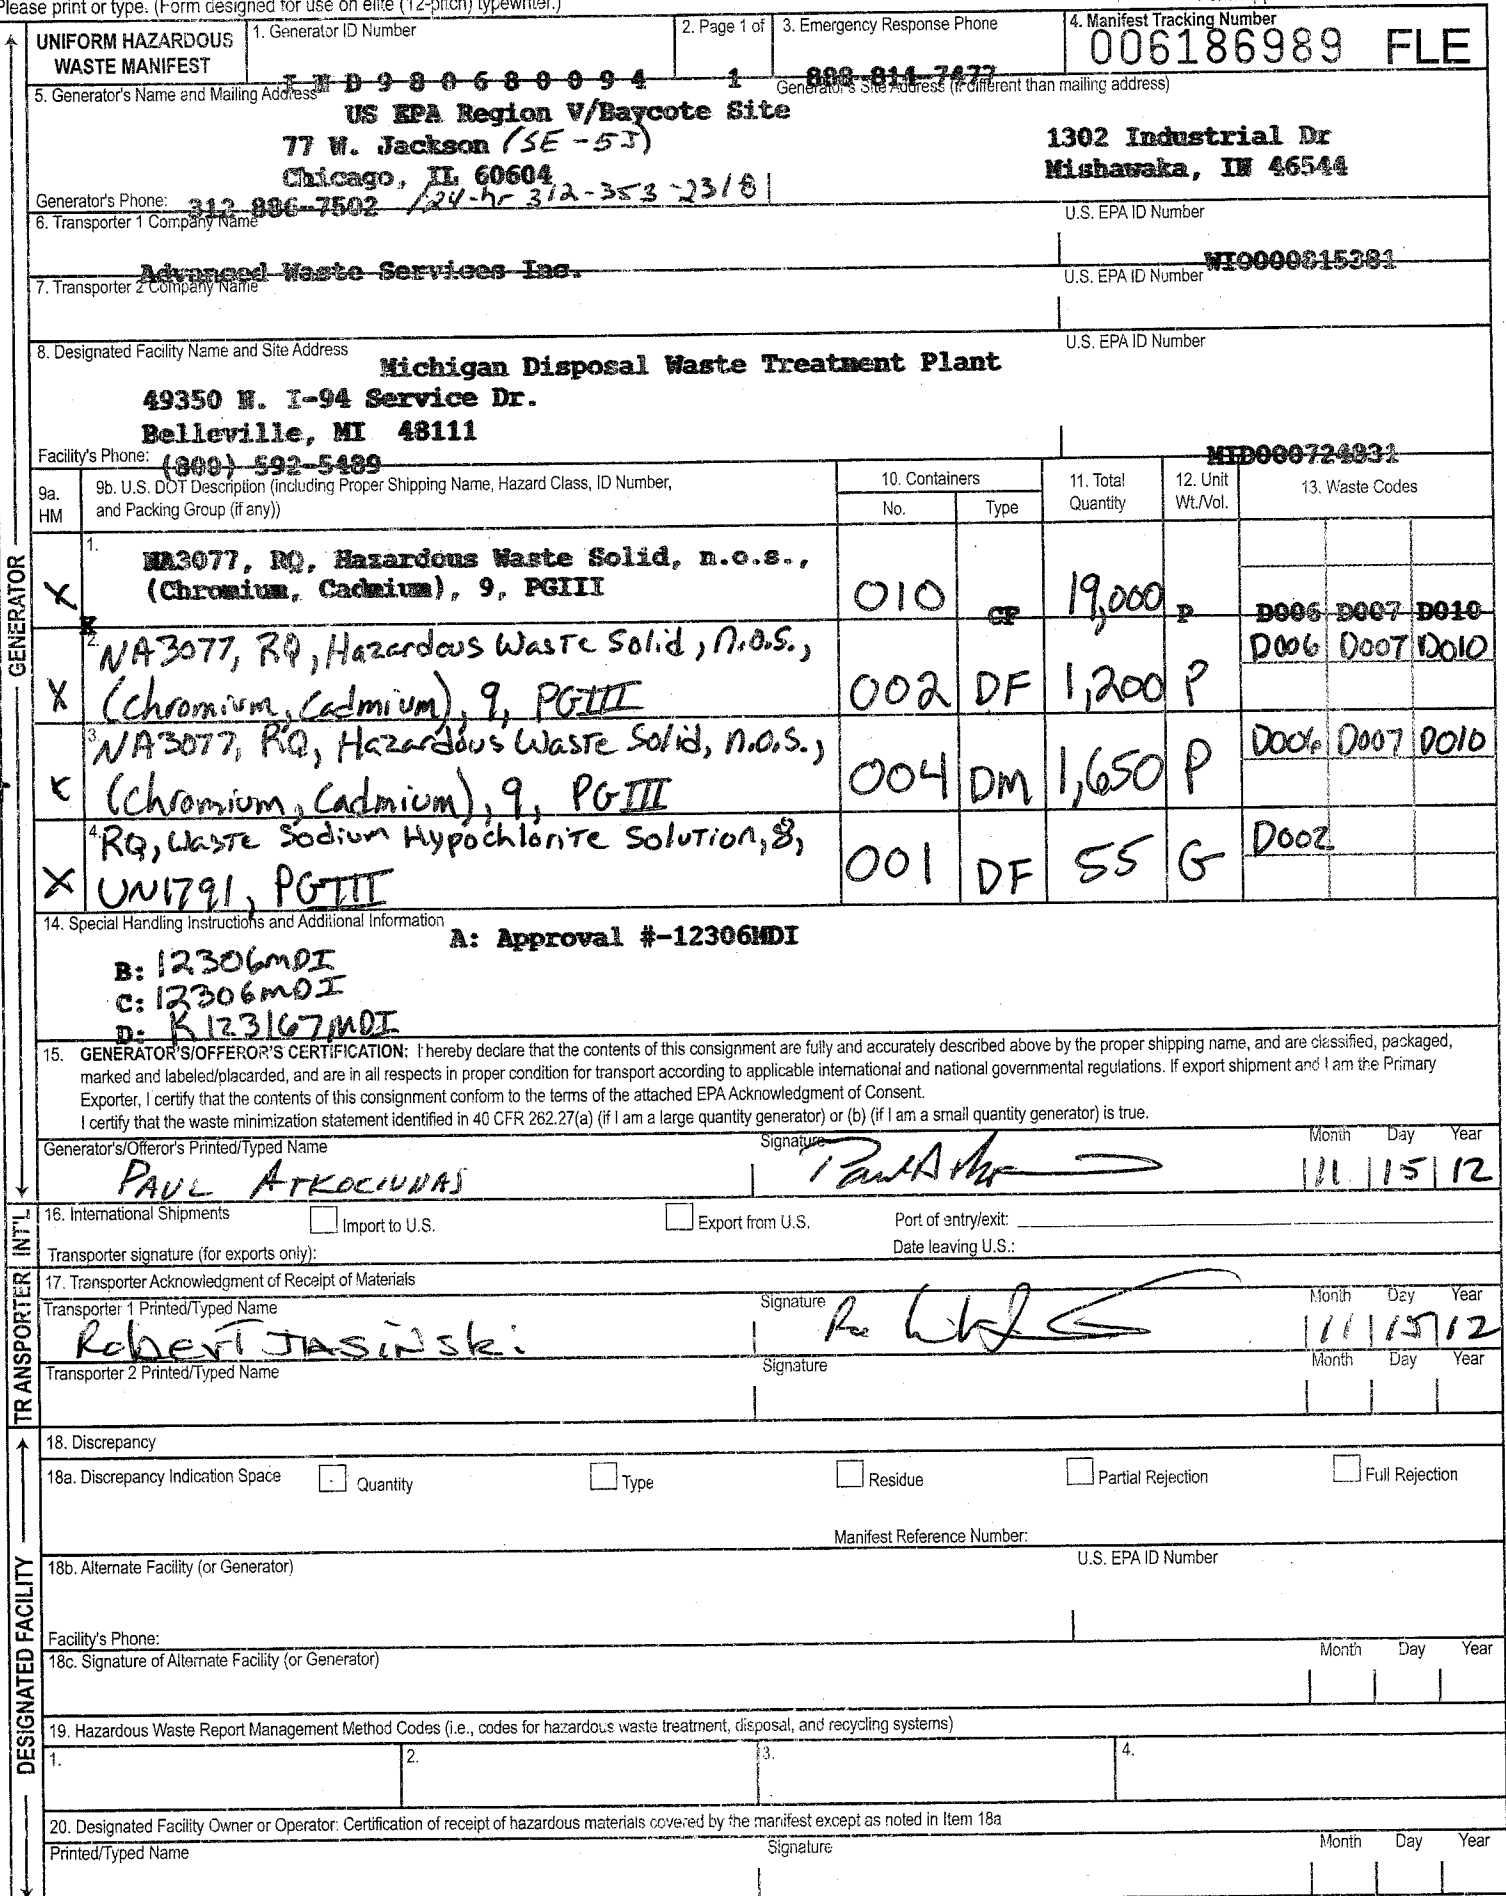 Please print or type. (Form designed for use on elite (12-pitch) typewriter.)
UNIFORM HAZARDOUS WASTE MANIFEST
1. Generator ID Number
2. Page 1 of
3. Emergency Response Phone
4. Manifest Tracking Number
006186989 FLE
I N D 9 8 0 6 8 0 0 9 4 1 888-814-7477
5. Generator's Name and Mailing Address
Generator's Site Address (if different than mailing address)
US EPA Region V/Baycote Site
77 W. Jackson (SE-5J)
1302 Industrial Dr
Chicago, IL 60604
Mishawaka, IN 46544
Generator's Phone: 312-886-7502 /24-hr 312-353-2318
6. Transporter 1 Company Name
U.S. EPA ID Number
Advanced Waste Services Inc.
WI0000815381
7. Transporter 2 Company Name
U.S. EPA ID Number
8. Designated Facility Name and Site Address
U.S. EPA ID Number
Michigan Disposal Waste Treatment Plant
49350 N. I-94 Service Dr.
Belleville, MI 48111
Facility's Phone: (800) 592-5489
MID000724831
9a. HM
9b. U.S. DOT Description (including Proper Shipping Name, Hazard Class, ID Number,
and Packing Group (if any))
10. Containers
No. Type
11. Total Quantity
12. Unit Wt./Vol.
13. Waste Codes
GENERATOR
1. NA3077, RQ, Hazardous Waste Solid, n.o.s.,
X (Chromium, Cadmium), 9, PGIII 010 CF 19,000 P D006 D007 D010
X
2. NA3077, RQ, Hazardous Waste Solid, n.o.s., D006 D007 D010
X (Chromium, Cadmium), 9, PGIII 002 DF 1,200 P
3. NA3077, RQ, Hazardous Waste Solid, n.o.s., D006 D007 D010
X (Chromium, Cadmium), 9, PGIII 004 DM 1,650 P
4. RQ, Waste Sodium Hypochlorite Solution, 8, D002
X UN1791, PGIII 001 DF 55 G
14. Special Handling Instructions and Additional Information
A: Approval #-12306MDI
B: 12306MDI
C: 12306MDI
D: K123167MDI
15. GENERATOR'S/OFFEROR'S CERTIFICATION: I hereby declare that the contents of this consignment are fully and accurately described above by the proper shipping name, and are classified, packaged,
marked and labeled/placarded, and are in all respects in proper condition for transport according to applicable international and national governmental regulations. If export shipment and I am the Primary
Exporter, I certify that the contents of this consignment conform to the terms of the attached EPA Acknowledgment of Consent.
I certify that the waste minimization statement identified in 40 CFR 262.27(a) (if I am a large quantity generator) or (b) (if I am a small quantity generator) is true.
Generator's/Offeror's Printed/Typed Name Signature Month Day Year
PAUL ATKOCIUNAS 11 15 12
INT'L
16. International Shipments Import to U.S. Export from U.S. Port of entry/exit:
Transporter signature (for exports only): Date leaving U.S.:
TRANSPORTER
17. Transporter Acknowledgment of Receipt of Materials
Transporter 1 Printed/Typed Name Signature Month Day Year
Robert Jasinski 11 15 12
Transporter 2 Printed/Typed Name Signature Month Day Year
DESIGNATED FACILITY
18. Discrepancy
18a. Discrepancy Indication Space Quantity Type Residue Partial Rejection Full Rejection
Manifest Reference Number:
18b. Alternate Facility (or Generator) U.S. EPA ID Number
Facility's Phone:
18c. Signature of Alternate Facility (or Generator) Month Day Year
19. Hazardous Waste Report Management Method Codes (i.e., codes for hazardous waste treatment, disposal, and recycling systems)
1. 2. 3. 4.
20. Designated Facility Owner or Operator: Certification of receipt of hazardous materials covered by the manifest except as noted in Item 18a
Printed/Typed Name Signature Month Day Year